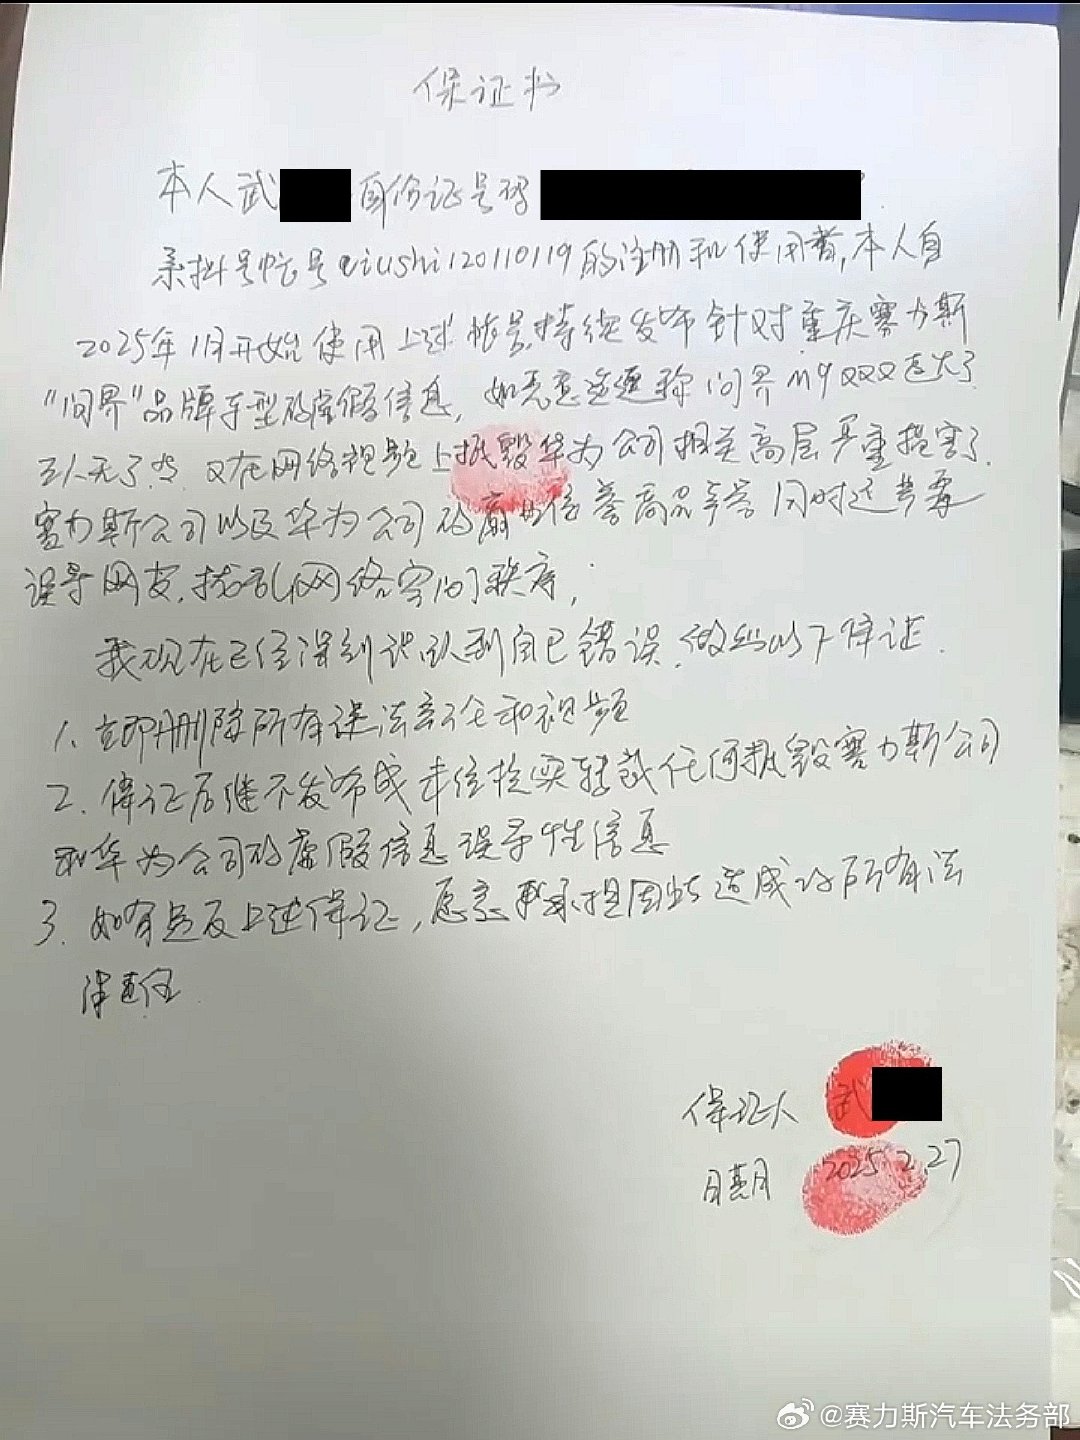 保证书
本人武 身份证号码
系抖号帐号qiushi120110119的注册和使用者,本人自
2025年1月开始使用上述帐号,持续发布针对重庆赛力斯
"问界"品牌车型的虚假信息,如恶意造谣称问界m9 起火了
三人无了等.又在网络视频上抵毁华为公司相关高层严重损害了
赛力斯公司以及华为公司的商业信誉商品声誉同时还严重
误导网友,扰乱网络空间秩序;
我现在已经深刻认识到自己错误,做出以下保证.
1、立即删除所有违法言论和视频
2、保证后继不发布或未经核实转载任何抵毁赛力斯公司
和华为公司的虚假信息误导性信息
3、如有违反上述保证,愿意承担因此造成的所有法
律责任
保证人 武
日期 2025.2.27
@赛力斯汽车法务部